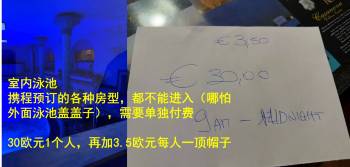 €3,50
€30,00
9AM - MIDNIGHT
室内泳池
携程预订的各种房型，都不能进入（哪怕
外面泳池盖盖子），需要单独付费
30欧元1个人，再加3.5欧元每人一顶帽子